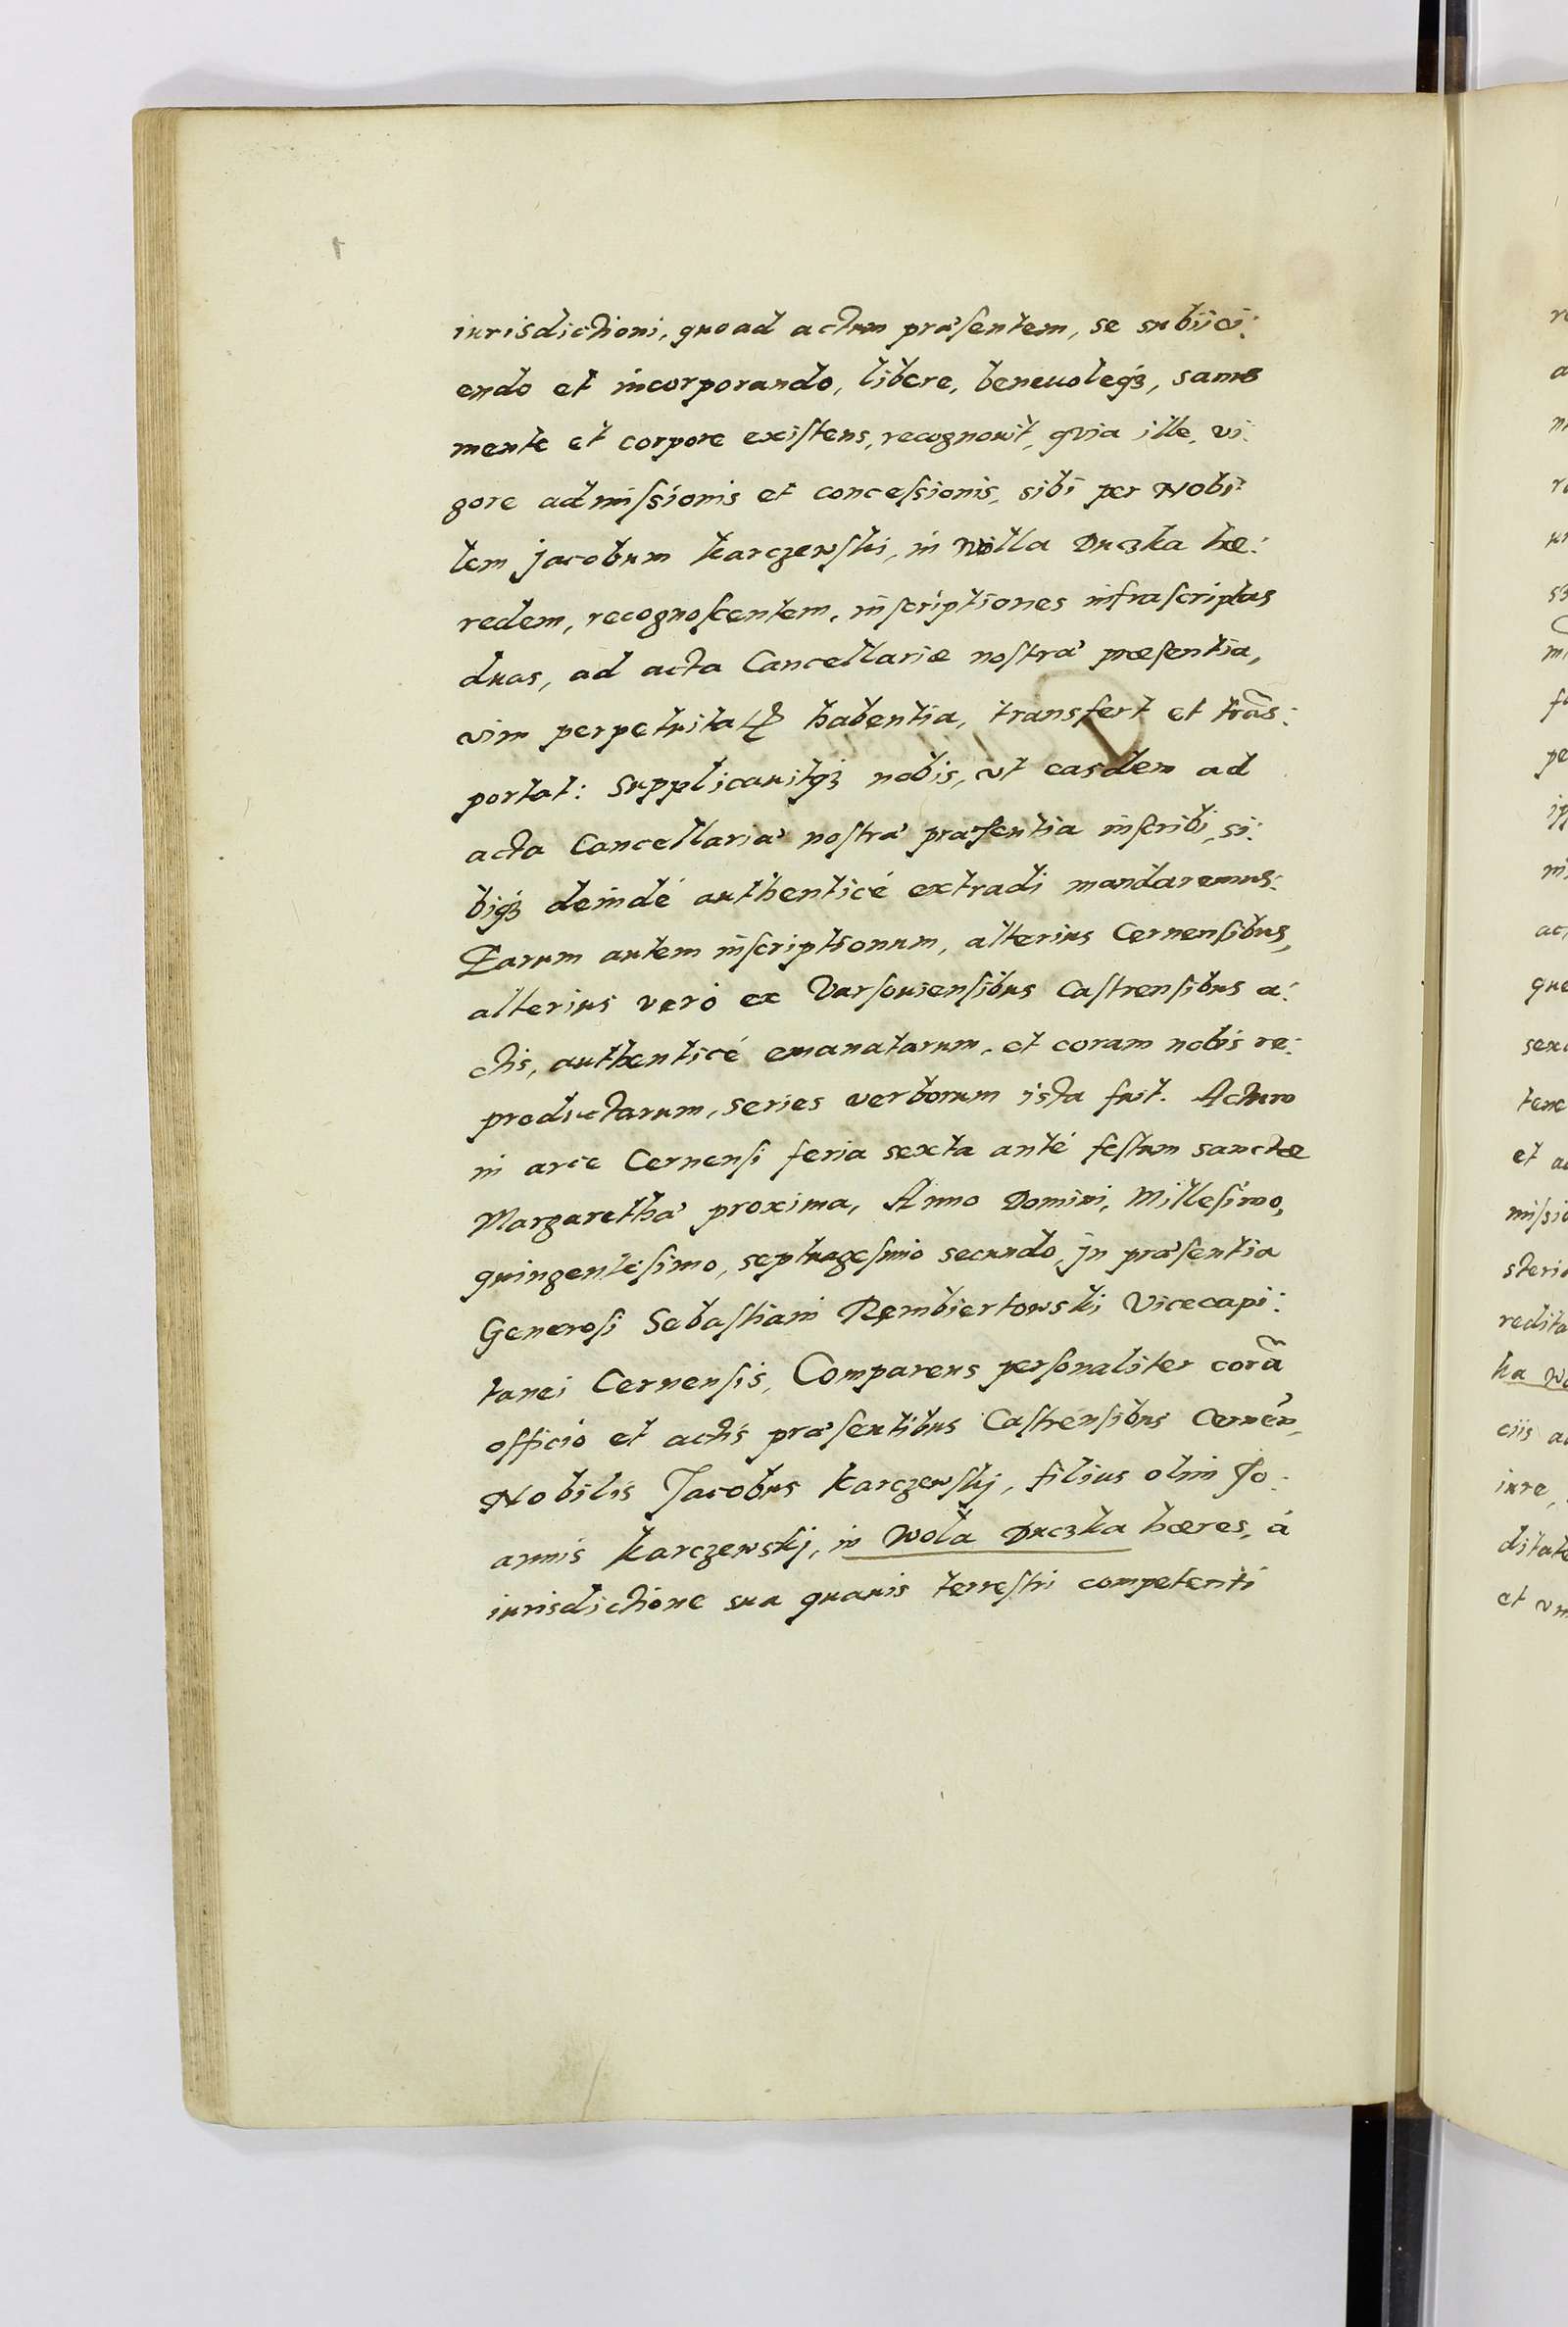 iurisdictioni, quoad actum præsentem, se subiici:
endo et incorporando, libere, beneuoleq3, sanus
mente et corpore existens, recognouit, quia ille, vi:
gore admissionis et concessionis, sibi per Nobi:
lem Jacobum Karczewski, in Wolla Duczka hæ:
redem, recognoscentem, inscriptiones infrascriptas
duas, ad acta Cancellariæ nostræ præsentia,
vim perpetuitatis habentia, transfert et trãs:
portat: Supplicauitq3 nobis, vt easdem ad
acta Cancellariæ nostræ præsentia inscribi, si:
biq3 deindé authenticé extradi mandaremus:
Earum autem inscriptionum, alterius Cernensibus,
alterius veró ex Varsouiensibus Castrensibus a:
ctis, authenticé emanatarum, et coram nobis re:
productarum, series verborum ista fuit. Actum
in arce Cernensi feria sexta anté festum sanctæ
Margarethæ proxima, Anno Domini, Millesimo,
quingentesimo, septuagesimo secundo, Jn præsentia
Generosi Sebastiani Rembiertowski Vicecapi:
tanei Cernensis, Comparens personaliter corã
officio et actis præsentibus Castrensibus Cernen,
Nobilis Jacobus Karczewskj, filius olim Jo:
annis Karczewskj, in Wola Duczka hæres, á
iurisdictione sua quauis terrestri competenti